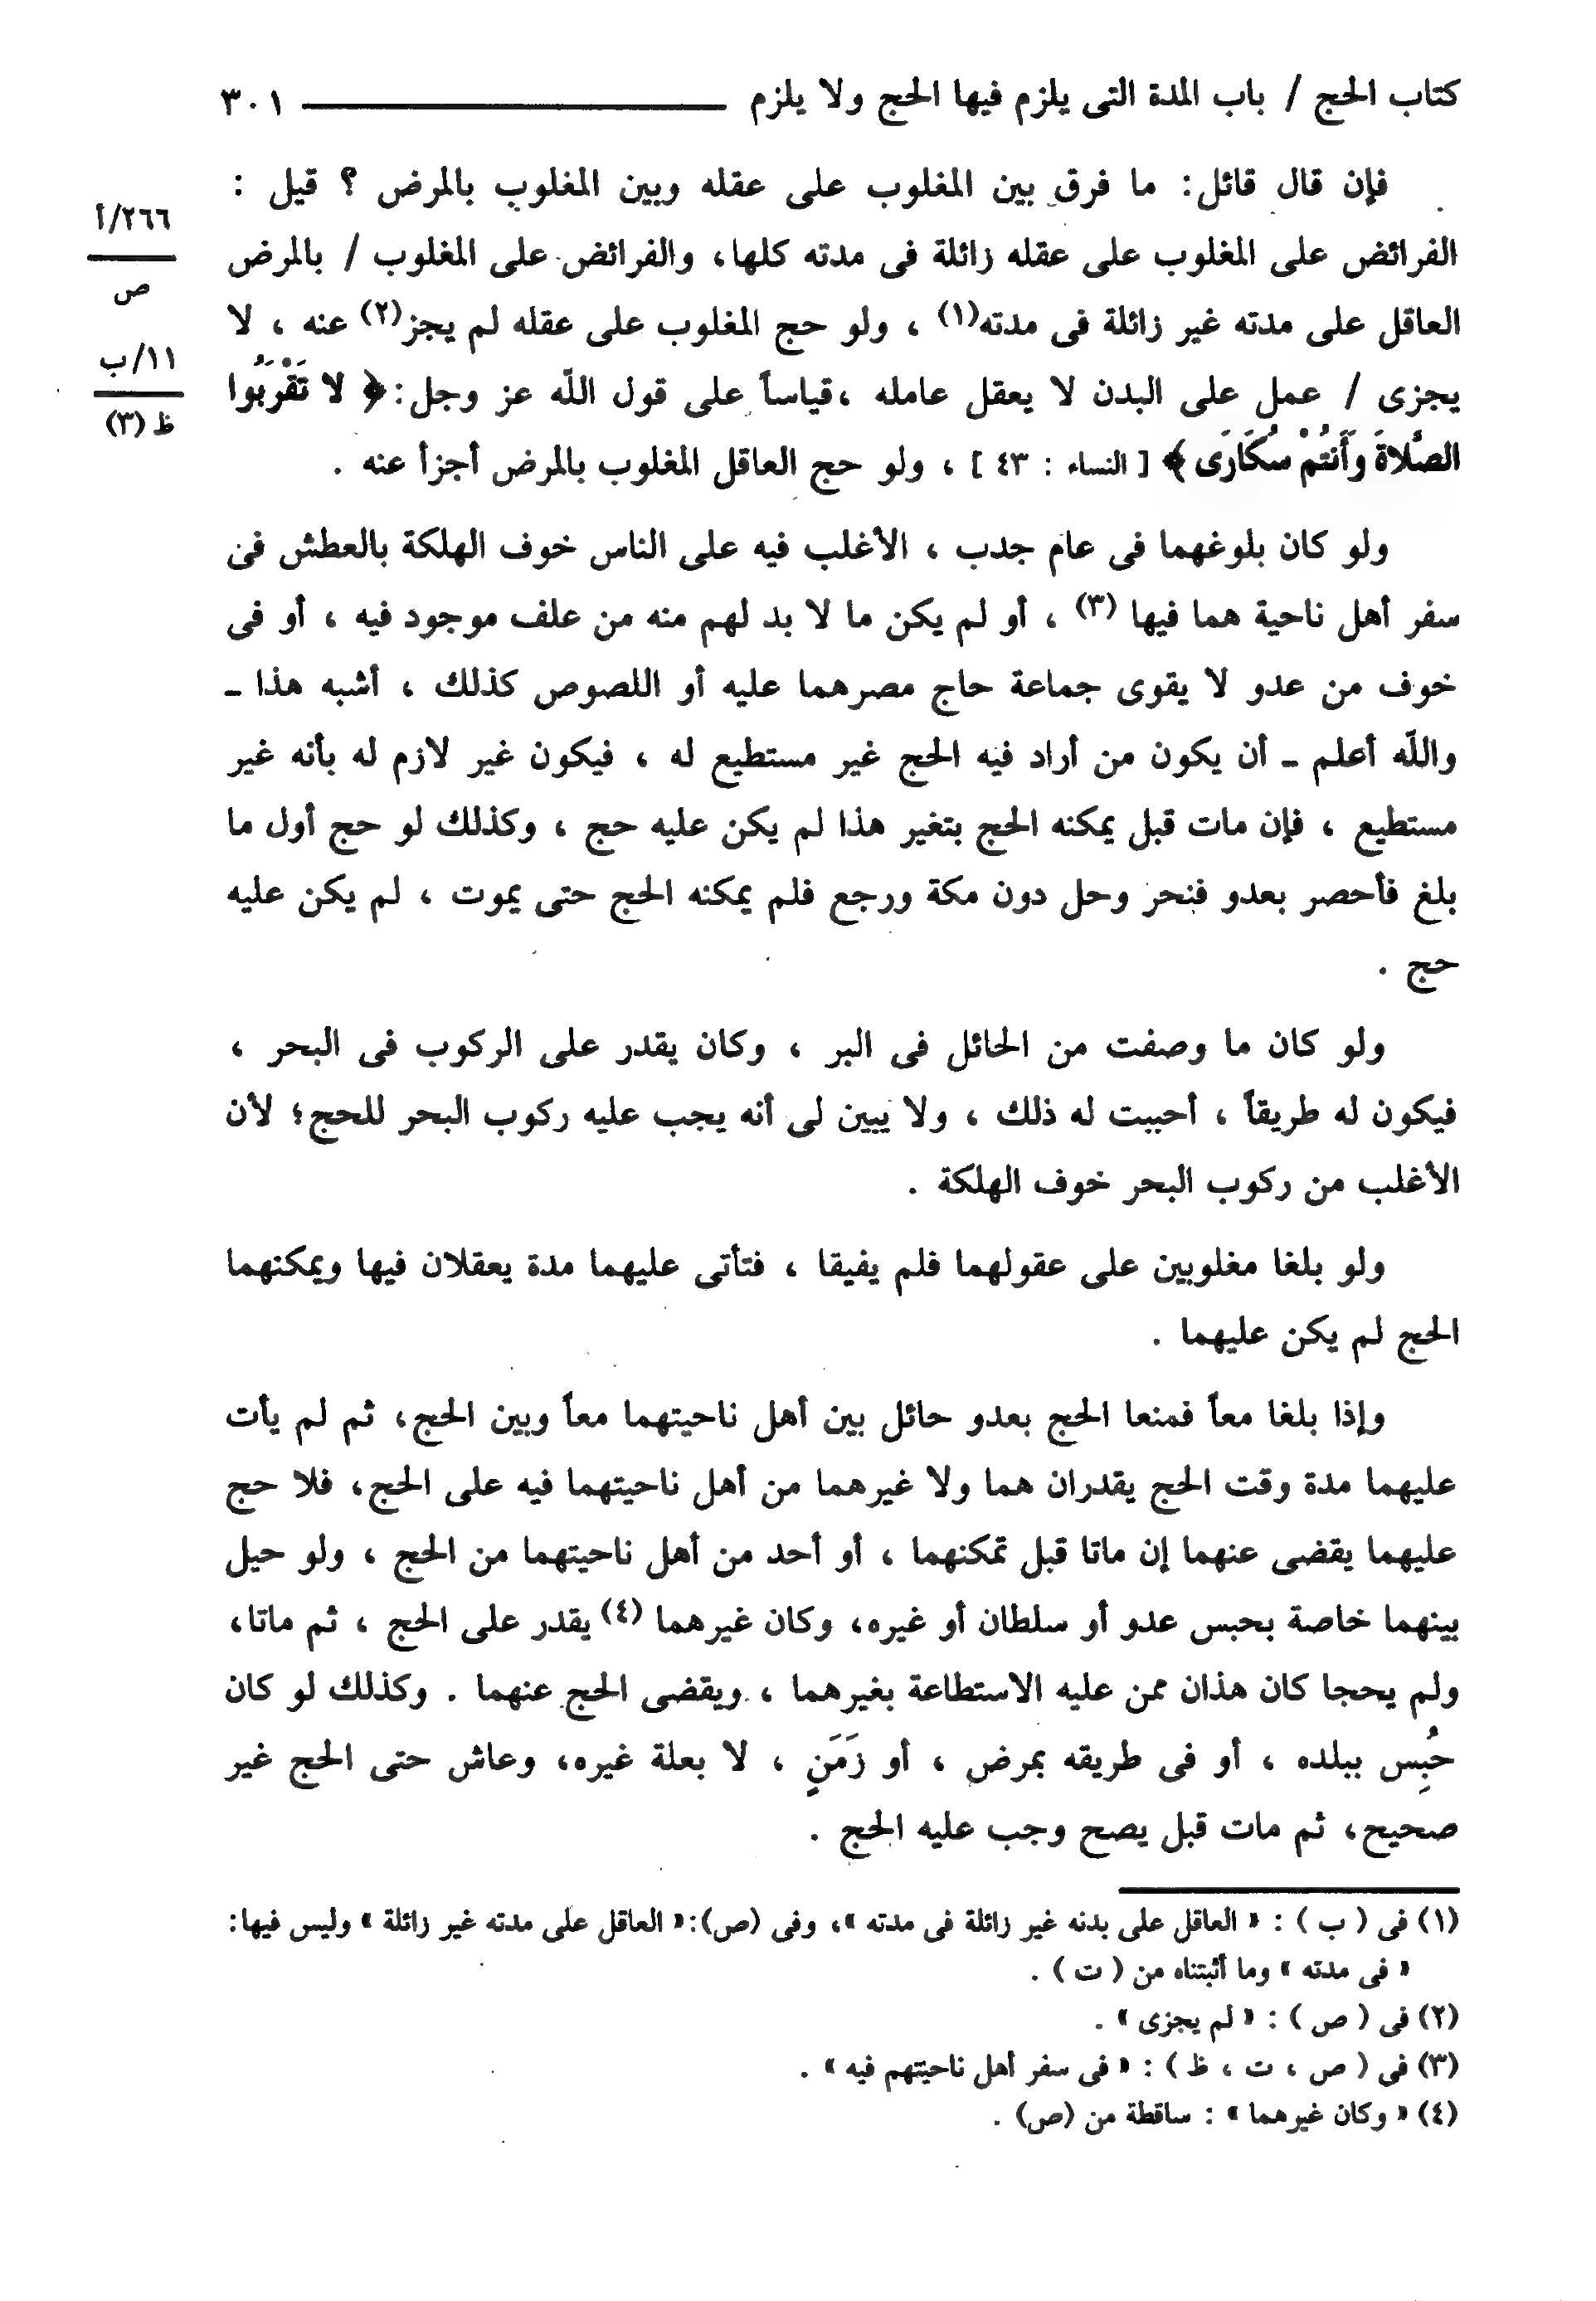 كتاب الحج / باب المدة التى يلزم فيها الحج ولا يلزم ٣٠١
فإن قال قائل: ما فرق بين المغلوب على عقله وبين المغلوب بالمرض ؟ قيل :
٢٦٦/أ
ص
الفرائض على المغلوب على عقله زائلة فى مدته كلها، والفرائض على المغلوب / بالمرض
العاقل على مدته غير زائلة فى مدته(١) ، ولو حج المغلوب على عقله لم يجز(٢) عنه ، لا
١١/ب
ظ (٣)
يجزى / عمل على البدن لا يعقل عامله ،قياساً على قول اللّه عز وجل: ﴿ لا تَقْرَبُوا
الصَّلاةَ وَأَنتُمْ سُكَارَى ﴾ [ النساء : ٤٣ ] ، ولو حج العاقل المغلوب بالمرض أجزأ عنه .
ولو كان بلوغهما فى عام جدب ، الأغلب فيه على الناس خوف الهلكة بالعطش فى
سفر أهل ناحية هما فيها (٣) ، أو لم يكن ما لا بد لهم منه من علف موجود فيه ، أو فى
خوف من عدو لا يقوى جماعة حاج مصرهما عليه أو اللصوص كذلك ، أشبه هذا ـ
واللّه أعلم ـ أن يكون من أراد فيه الحج غير مستطيع له ، فيكون غير لازم له بأنه غير
مستطيع ، فإن مات قبل يمكنه الحج بتغير هذا لم يكن عليه حج ، وكذلك لو حج أول ما
بلغ فأحصر بعدو فنحر وحل دون مكة ورجع فلم يمكنه الحج حتى يموت ، لم يكن عليه
حج .
ولو كان ما وصفت من الحائل فى البر ، وكان يقدر على الركوب فى البحر ،
فيكون له طريقاً ، أحببت له ذلك ، ولا يبين لى أنه يجب عليه ركوب البحر للحج؛ لأن
الأغلب من ركوب البحر خوف الهلكة .
ولو بلغا مغلوبين على عقولهما فلم يفيقا ، فتأتى عليهما مدة يعقلان فيها ويمكنهما
الحج لم يكن عليهما .
وإذا بلغا معاً فمنعا الحج بعدو حائل بين أهل ناحيتهما معاً وبين الحج، ثم لم يأت
عليهما مدة وقت الحج يقدران هما ولا غيرهما من أهل ناحيتهما فيه على الحج، فلا حج
عليهما يقضى عنهما إن ماتا قبل تمكنهما ، أو أحد من أهل ناحيتهما من الحج ، ولو حيل
بينهما خاصة بحبس عدو أو سلطان أو غيره، وكان غيرهما (٤) يقدر على الحج ، ثم ماتا،
ولم يحجا كان هذان ممن عليه الاستطاعة بغيرهما ، ويقضى الحج عنهما . وكذلك لو كان
حُبِس ببلده ، أو فى طريقه بمرض ، أو زَمَنٍ ، لا بعلة غيره، وعاش حتى الحج غير
صحيح، ثم مات قبل يصح وجب عليه الحج .
(١) فى ( ب ) : « العاقل على بدنه غير زائلة فى مدته »، وفى (ص): « العاقل على مدته غير زائلة » وليس فيها:
« فى مدته » وما أثبتناه من ( ت ) .
(٢) فى ( ص ) : « لم يجزى » .
(٣) فى ( ص ، ت ، ظ ) : « فى سفر أهل ناحيتهم فيه » .
(٤) « وكان غيرهما » : ساقطة من (ص) .